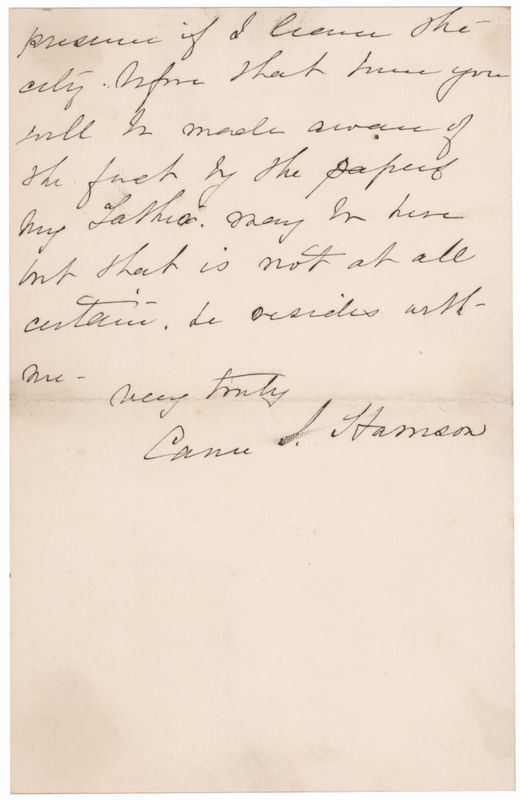 presence if I leave the
city. before that time you
will be made aware of
the fact by the papers
my Father. may be here
but that is not at all
certain. he resides with
me-
very truly
Carrie S. Harrison